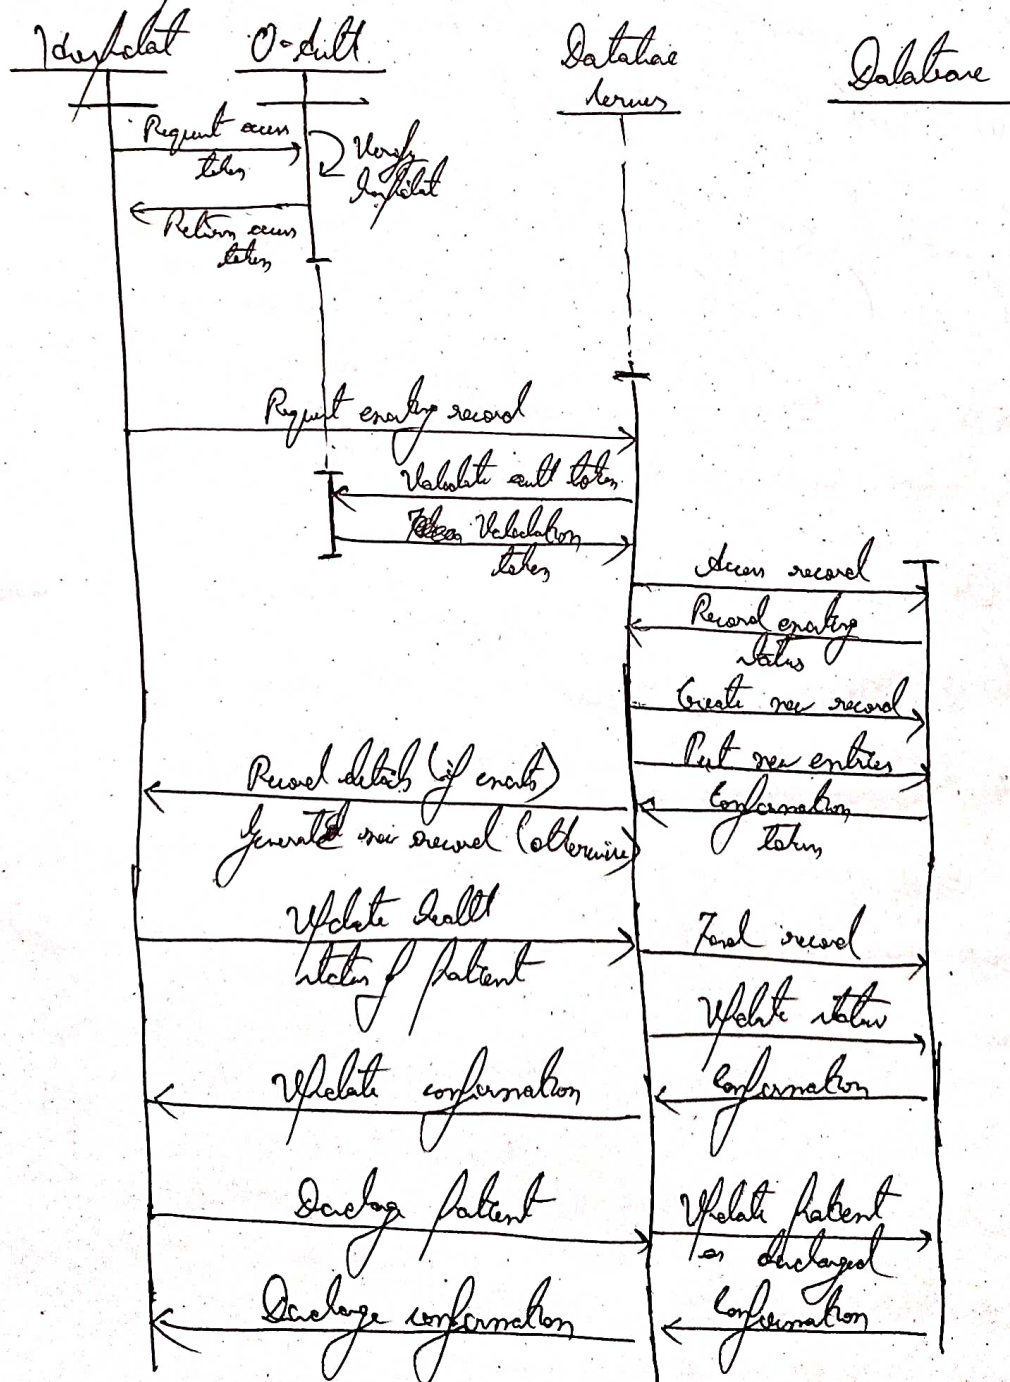 Hospital O-Auth Database Database
server
Request access
token
Verify
hospital
Return access
token
Request existing record
Validate auth token
Validation
token
Access record
Record existing
status
Create new record
Put new entries
Record details (if exists)
Confirmation
token
Generated new record (otherwise)
Update health
status of patient
Find record
Update status
Update confirmation
Confirmation
Discharge patient
Update patient
as discharged
Discharge confirmation
Confirmation